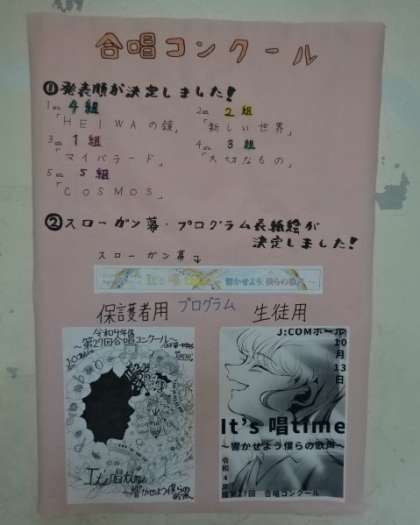 合唱コンクール
①発表順が決定しました!
1番 4組 2番 2組
「HEIWAの鐘」 「新しい世界」
3番 1組 4番 3組
「マイバラード」 「大切なもの」
5番 5組
「COSMOS」
②スローガン幕・プログラム表紙絵が
決定しました!
スローガン幕↓
It's 唱time 響かせよう 僕らの歌声〜
プログラム
保護者用 生徒用
令和4年度
第27回合唱コンクール
It's 唱time
〜響かせよう僕らの歌声
J:COMホール
10月13日
It's 唱time
〜響かせよう僕らの歌声〜
令和4年度
第27回 合唱コンクール